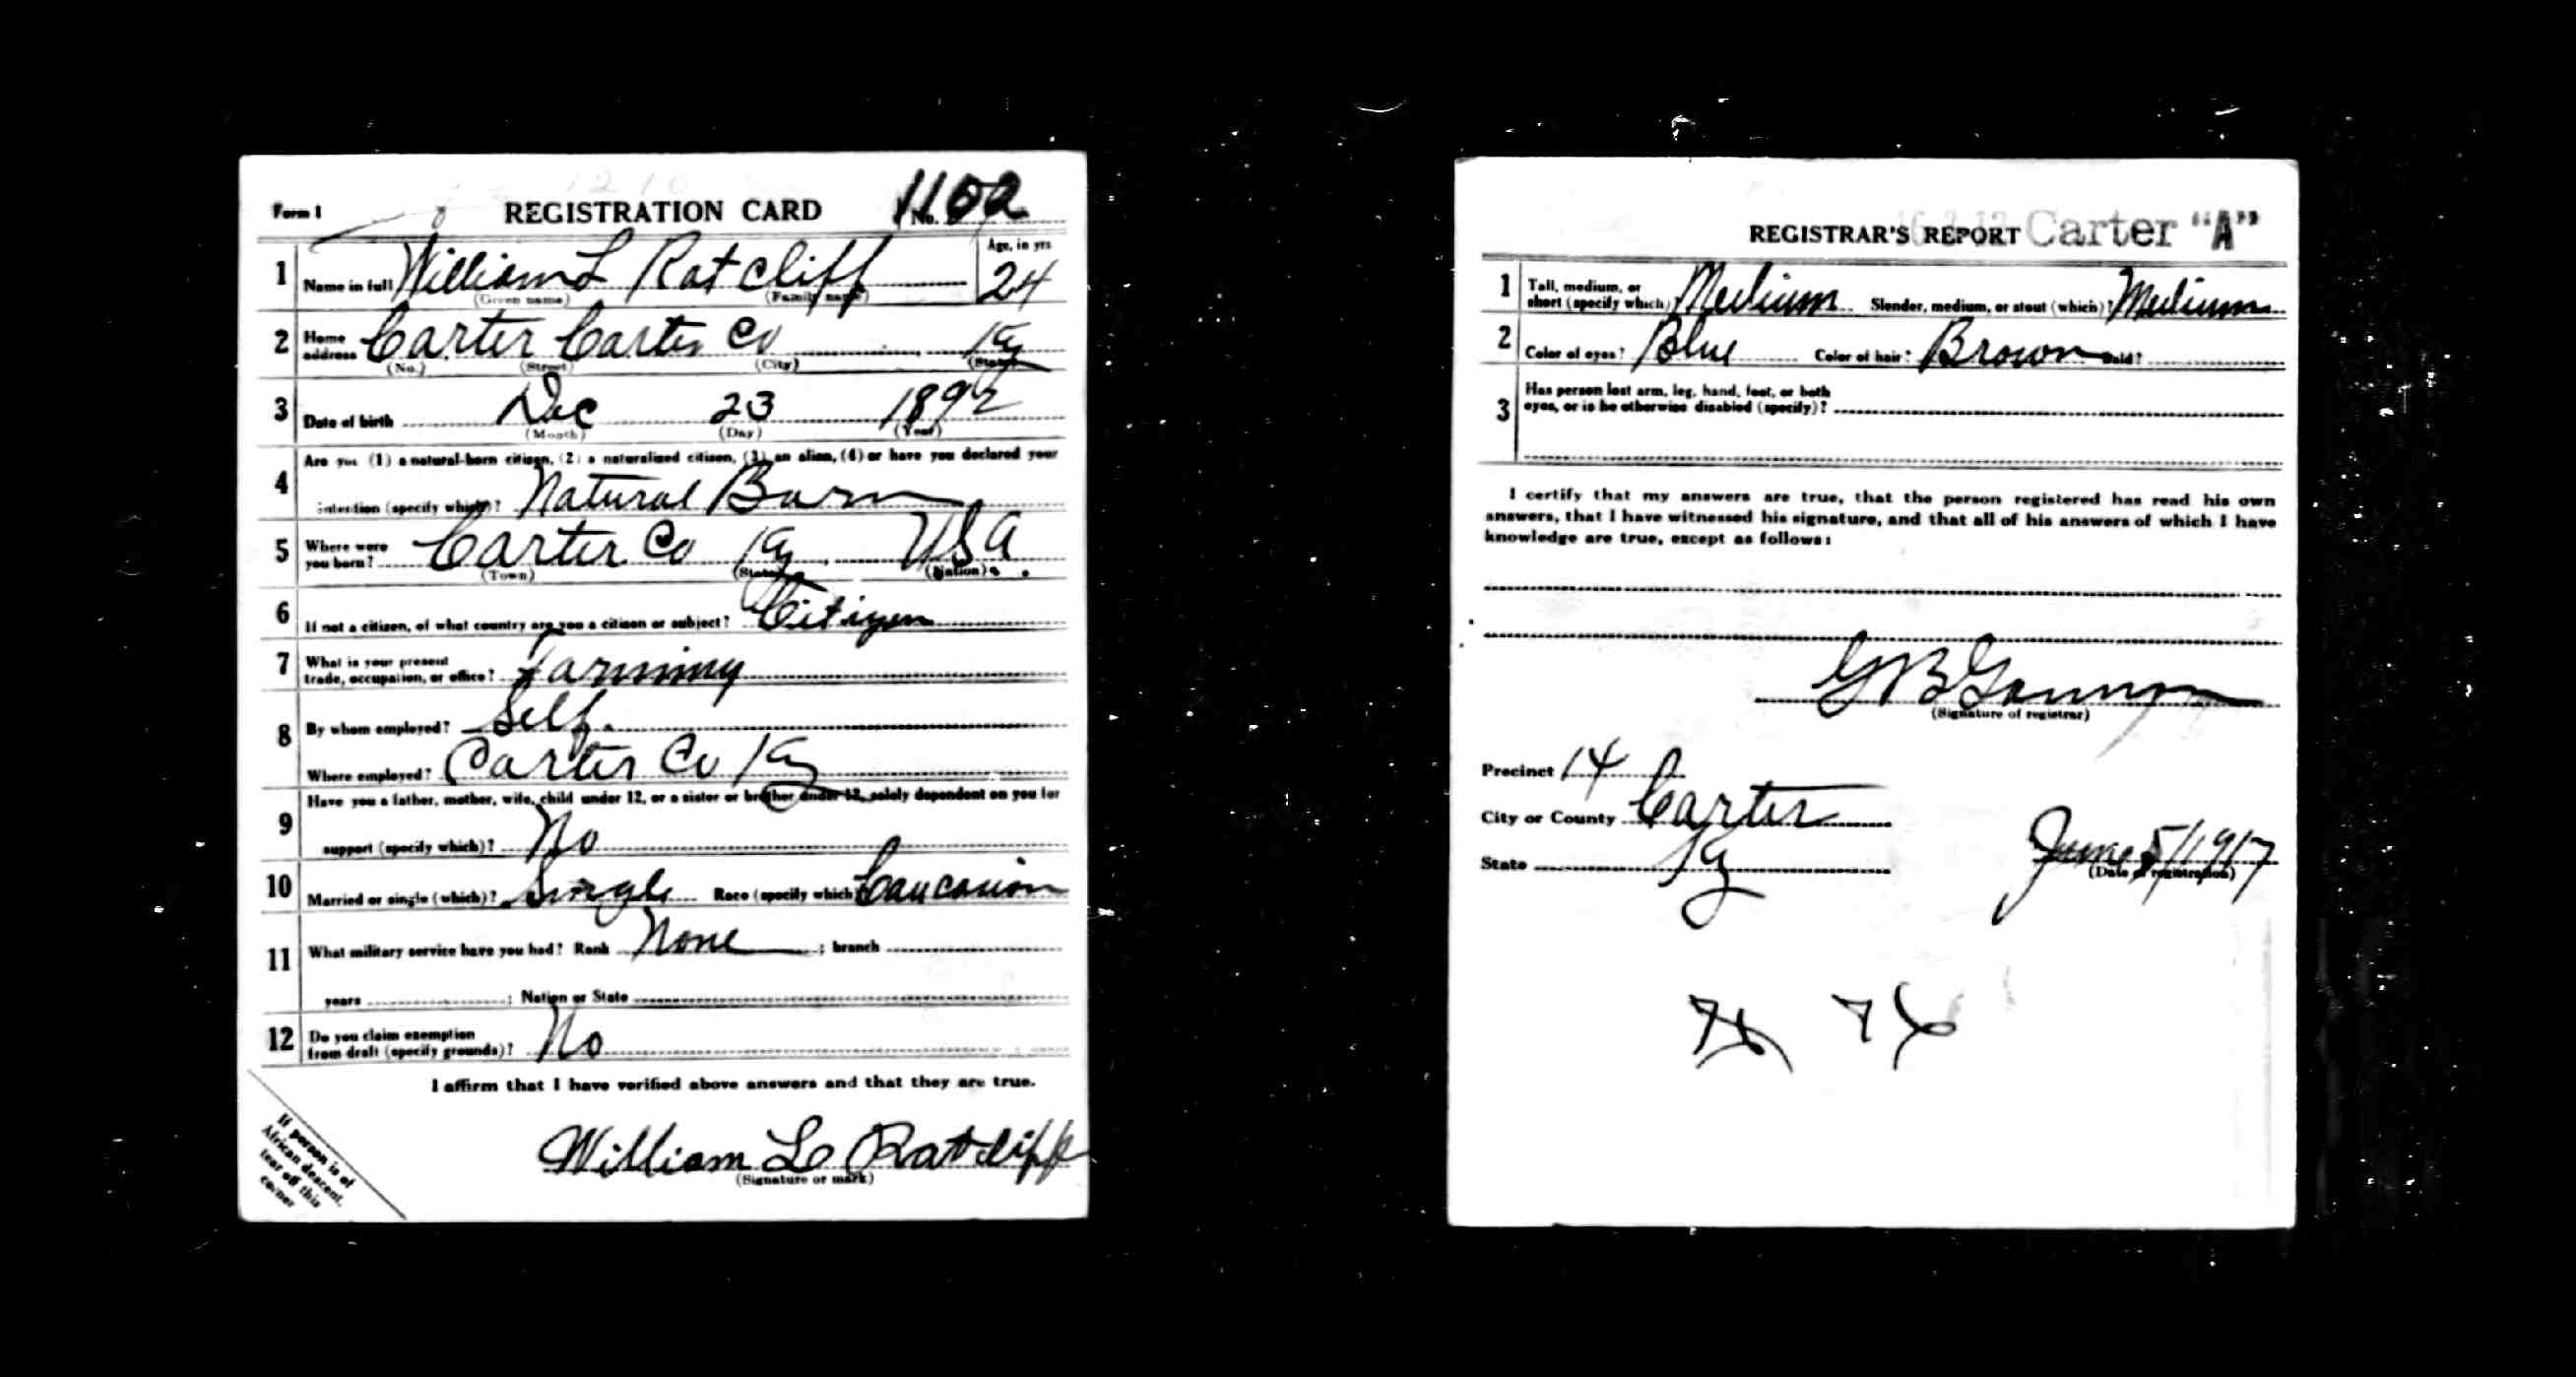 Form 1 REGISTRATION CARD No. 1102
1 Name in full William L Ratcliff Age, in yrs 24
(Given name) (Family name)
2 Home address Carter Carter Co Ky
(No.) (Street) (City) (State)
3 Date of birth Dec 23 1892
(Month) (Day) (Year)
4 Are you (1) a natural-born citizen, (2) a naturalized citizen, (3) an alien, (4) or have you declared your
intention (specify which)? Natural Born
5 Where were you born? Carter Co Ky USA
(Town) (State) (Nation)
6 If not a citizen, of what country are you a citizen or subject? Citizen
7 What is your present
trade, occupation, or office? Farming
8 By whom employed? Self.
Where employed? Carter Co Ky
9 Have you a father, mother, wife, child under 12, or a sister or brother under 12, solely dependent on you for
support (specify which)? No
10 Married or single (which)? Single Race (specify which)? Caucasion
11 What military service have you had? Rank None ; branch
years ; Nation or State
12 Do you claim exemption
from draft (specify grounds)? No
I affirm that I have verified above answers and that they are true.
William L Ratcliff
(Signature or mark)
If person is of
African descent,
tear off this
corner
REGISTRAR'S REPORT Carter "A"
1 Tall, medium, or
short (specify which)? Medium Slender, medium, or stout (which)? Medium
2 Color of eyes? Blue Color of hair? Brown Bald?
3 Has person lost arm, leg, hand, foot, or both
eyes, or is he otherwise disabled (specify)?
I certify that my answers are true, that the person registered has read his own
answers, that I have witnessed his signature, and that all of his answers of which I have
knowledge are true, except as follows:
G B
(Signature of registrar)
Precinct 14
City or County Carter
State Ky June 5/1917
(Date of registration)